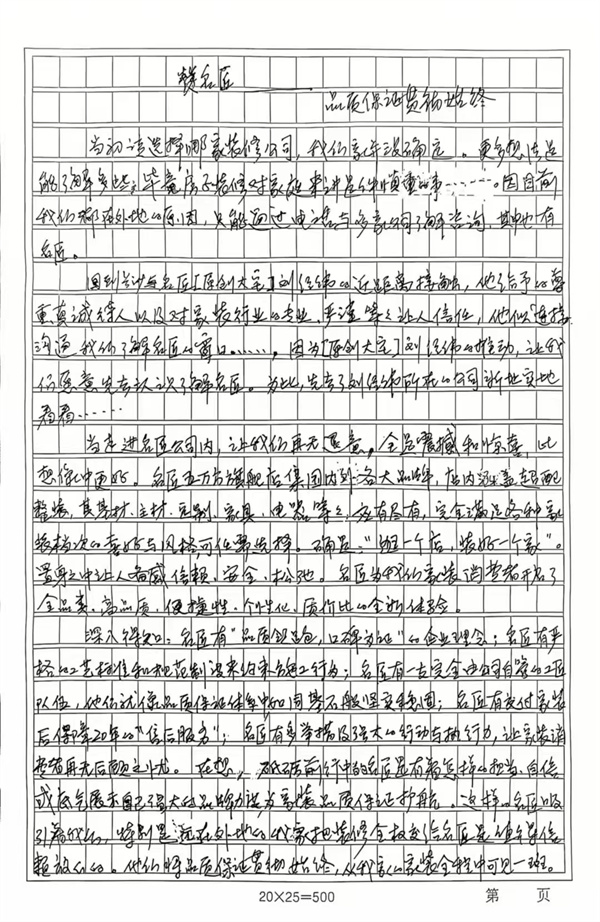 赞名匠
品质保证贯彻始终
当初请选择哪家装修公司，我们家并没确定。更多想法是
能了解多些；毕竟房子装修对家庭来讲是件慎重的事……。因目前
我们都在外地的原因，只能通过电话与多家公司了解咨询，其中也有
名匠。
回到长沙与名匠[原创大宅]刘经纬的近距离接触，他给予的尊
重真诚待人以及对家装行业的专业、严谨等等让人信任，他似连接
沟通我们了解名匠的窗口……，因为[原创大宅]刘经纬的推动，让我
们愿意先去认识了解名匠。为此，先去了刘经纬所在的公司新址实地
看看……
当走进名匠公司内，让我们再无退意，全是震撼和惊喜，比
想像中更好。名匠五万方旗舰店集国内外各大品牌，店内涵盖超配
整装，其基材、主材、定制、家具、电器等等，应有尽有，完全满足各种家
装档次的喜好与风格可任需选择。确是："逛一个店，装好一个家"。
置身之中让人倍感信赖、安全、松弛。名匠为我们家装消费者开启了
全品类、高品质、便捷性、个性化、质价比的全新体验。
深入得知：名匠有"品质银包，口碑为证"的企业理念；名匠有严
格的工艺标准和规范制度来约束施工行为；名匠有一支完全由公司自管的工匠
队伍，他们就像品质保证体系中的同基石般坚实牢固；名匠有交付家装
后保障20年的"售后服务"；名匠有多举措及强大的行动与执行力，让家装消
费者再无后顾之忧。在想，砥砺前行中的名匠是有着怎样的担当、自信
或底气展示自己强大的品牌力誉为家装品质保证护航。这样的名匠吸
引着我们，特别是远在外地的我家把装修全权交给名匠是值得信
赖放心的。他们将品质保证贯彻始终，从我家的家装全程中可见一斑。
20×25=500
第 页